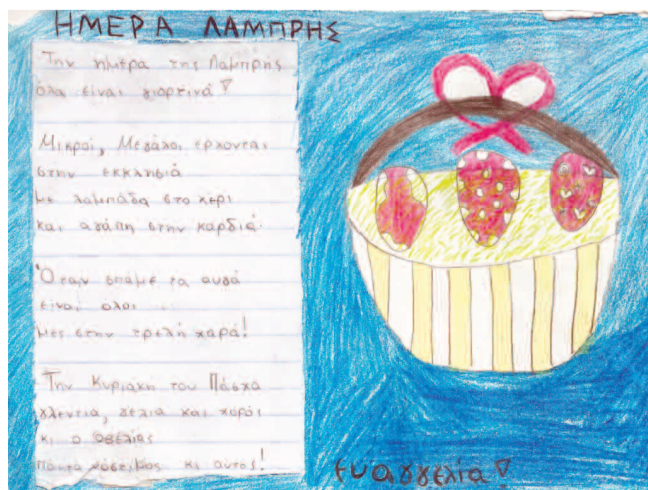 ΗΜΕΡΑ ΛΑΜΠΡΗΣ
Την ημέρα της Λαμπρής
όλα είναι γιορτινά!
Μικροί, Μεγάλοι έρχονται
στην εκκλησιά
με λαμπάδα στο χέρι
και αγάπη στην καρδιά.
Όταν σπάμε τα αυγά
είναι όλοι
μες στην τρελή χαρά!
Την Κυριακή του Πάσχα
γλέντια, γέλια και χοροί
κι ο οβελίας
πάντα νόστιμος κι αυτός!
Ευαγγελία